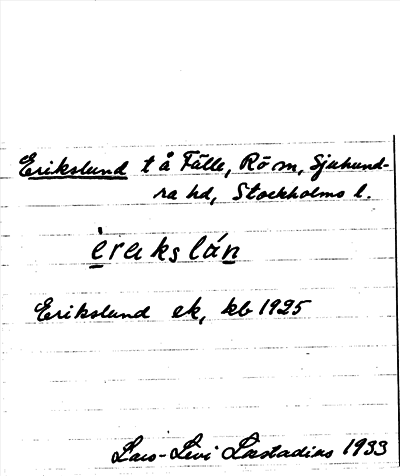 Erikslund t å Fälle, Rö sn, Sjuhund-
ra hd, Stockholms l.
èrɐkslán
Erikslund ek, kb 1925
Lars-Levi Læstadius 1933